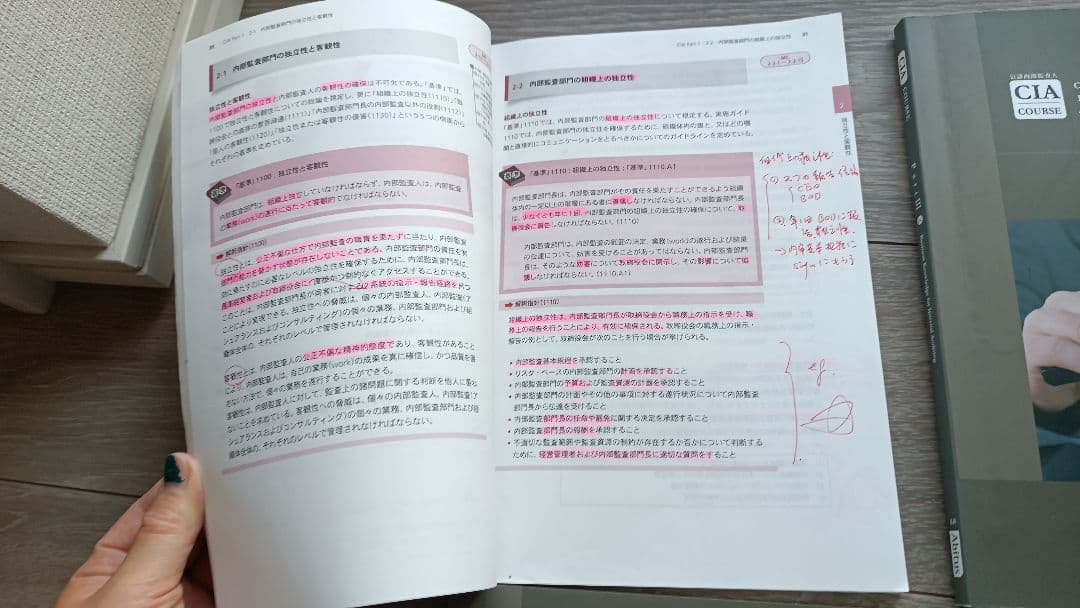 CIA Part 1 2-1 内部監査部門の独立性と客観性
2-1 内部監査部門の独立性と客観性
独立性と客観性
内部監査部門の独立性と内部監査人の客観性の確保は不可欠である。「基準」では、
1100で独立性と客観性についての総論を規定し、更に「組織上の独立性(1110)」「取
締役会との直接の意思疎通(1111)」「内部監査部門長の内部監査以外の役割(1112)」
「個人の客観性(1120)」「独立性または客観性の侵害(1130)」という5つの側面から
それぞれの基準を定めている。
基準
「基準」1100:独立性と客観性
内部監査部門は、組織上独立していなければならず、内部監査人は、内部監査
の業務(work)の遂行に当たって客観的でなければならない。
➡ 解釈指針(1100)
独立性とは、公正不偏な仕方で内部監査の職責を果たすに当たり、内部監査
部門の能力を脅かす状態が存在しないことである。内部監査部門の責任を有
効に果たすのに必要なレベルの独立性を確保するために、内部監査部門長は、
最高経営者および取締役会に直接かつ制約なくアクセスすることができる。
このことは、内部監査部門長が両者に対する2系統の指示・報告経路を持つ
ことにより実現できる。独立性への脅威は、個々の内部監査人、内部監査(ア
シュアランスおよびコンサルティング)の個々の業務、内部監査部門および組
織体全体の、それぞれのレベルで管理されなければならない。
客観性とは、内部監査人の公正不偏な精神的態度であり、客観性があること
により、内部監査人は、自己の業務(work)の成果を真に確信し、かつ品質を害
さない方法で、個々の業務を遂行することができる。
客観性は、内部監査人に対して、監査上の諸問題に関する判断を他人に委ね
ないことを求めている。客観性への脅威は、個々の内部監査人、内部監査(ア
シュアランスおよびコンサルティング)の個々の業務、内部監査部門および組
織体全体の、それぞれのレベルで管理されなければならない。
CIA Part 1 2-2 内部監査部門の組織上の独立性
2-2 内部監査部門の組織上の独立性
組織上の独立性
「基準」1110では、内部監査部門の組織上の独立性について規定する。実施ガイド
1110では、内部監査部門の独立性を確保するために、組織体内の誰と、又はどの機
関と直接的にコミュニケーションをとるべきかについてのガイドラインを定めている。
基準
「基準」1110:組織上の独立性;「基準」1110.A1
内部監査部門長は、内部監査部門がその責任を果たすことができるよう組織
体内の一定以上の階層にある者に直属しなければならない。内部監査部門長
は、少なくとも年に1回、内部監査部門の組織上の独立性の確保について、取
締役会に報告しなければならない。(1110)
内部監査部門は、内部監査の範囲の決定、業務(work)の遂行および結果
の伝達について、妨害を受けることがあってはならない。内部監査部門
長は、そのような妨害について取締役会に開示し、その影響について協
議しなければならない。(1110.A1)
➡ 解釈指針(1110)
組織上の独立性は、内部監査部門長が取締役会から職務上の指示を受け、職
務上の報告を行うことにより、有効に確保される。取締役会の職務上の指示・
報告の例として、取締役会が次のことを行う場合が挙げられる。
• 内部監査基本規程を承認すること
• リスク・ベースの内部監査部門の計画を承認すること
• 内部監査部門の予算および監査資源の計画を承認すること
• 内部監査部門の計画やその他の事項に対する遂行状況について内部監査
部門長から伝達を受けること
• 内部監査部門長の任命や罷免に関する決定を承認すること
• 内部監査部門長の報酬を承認すること
• 不適切な監査範囲や監査資源の制約が存在するか否かについて判断する
ために、経営管理者および内部監査部門長に適切な質問をすること
2
独立性と客観性
組織上の独立性
① 2つの報告経路
CEO
BOD
② 年1回BODに報
ef.
公認内部監査人
CIA
COURSE
CIA
COURSE
Part III
Abitus